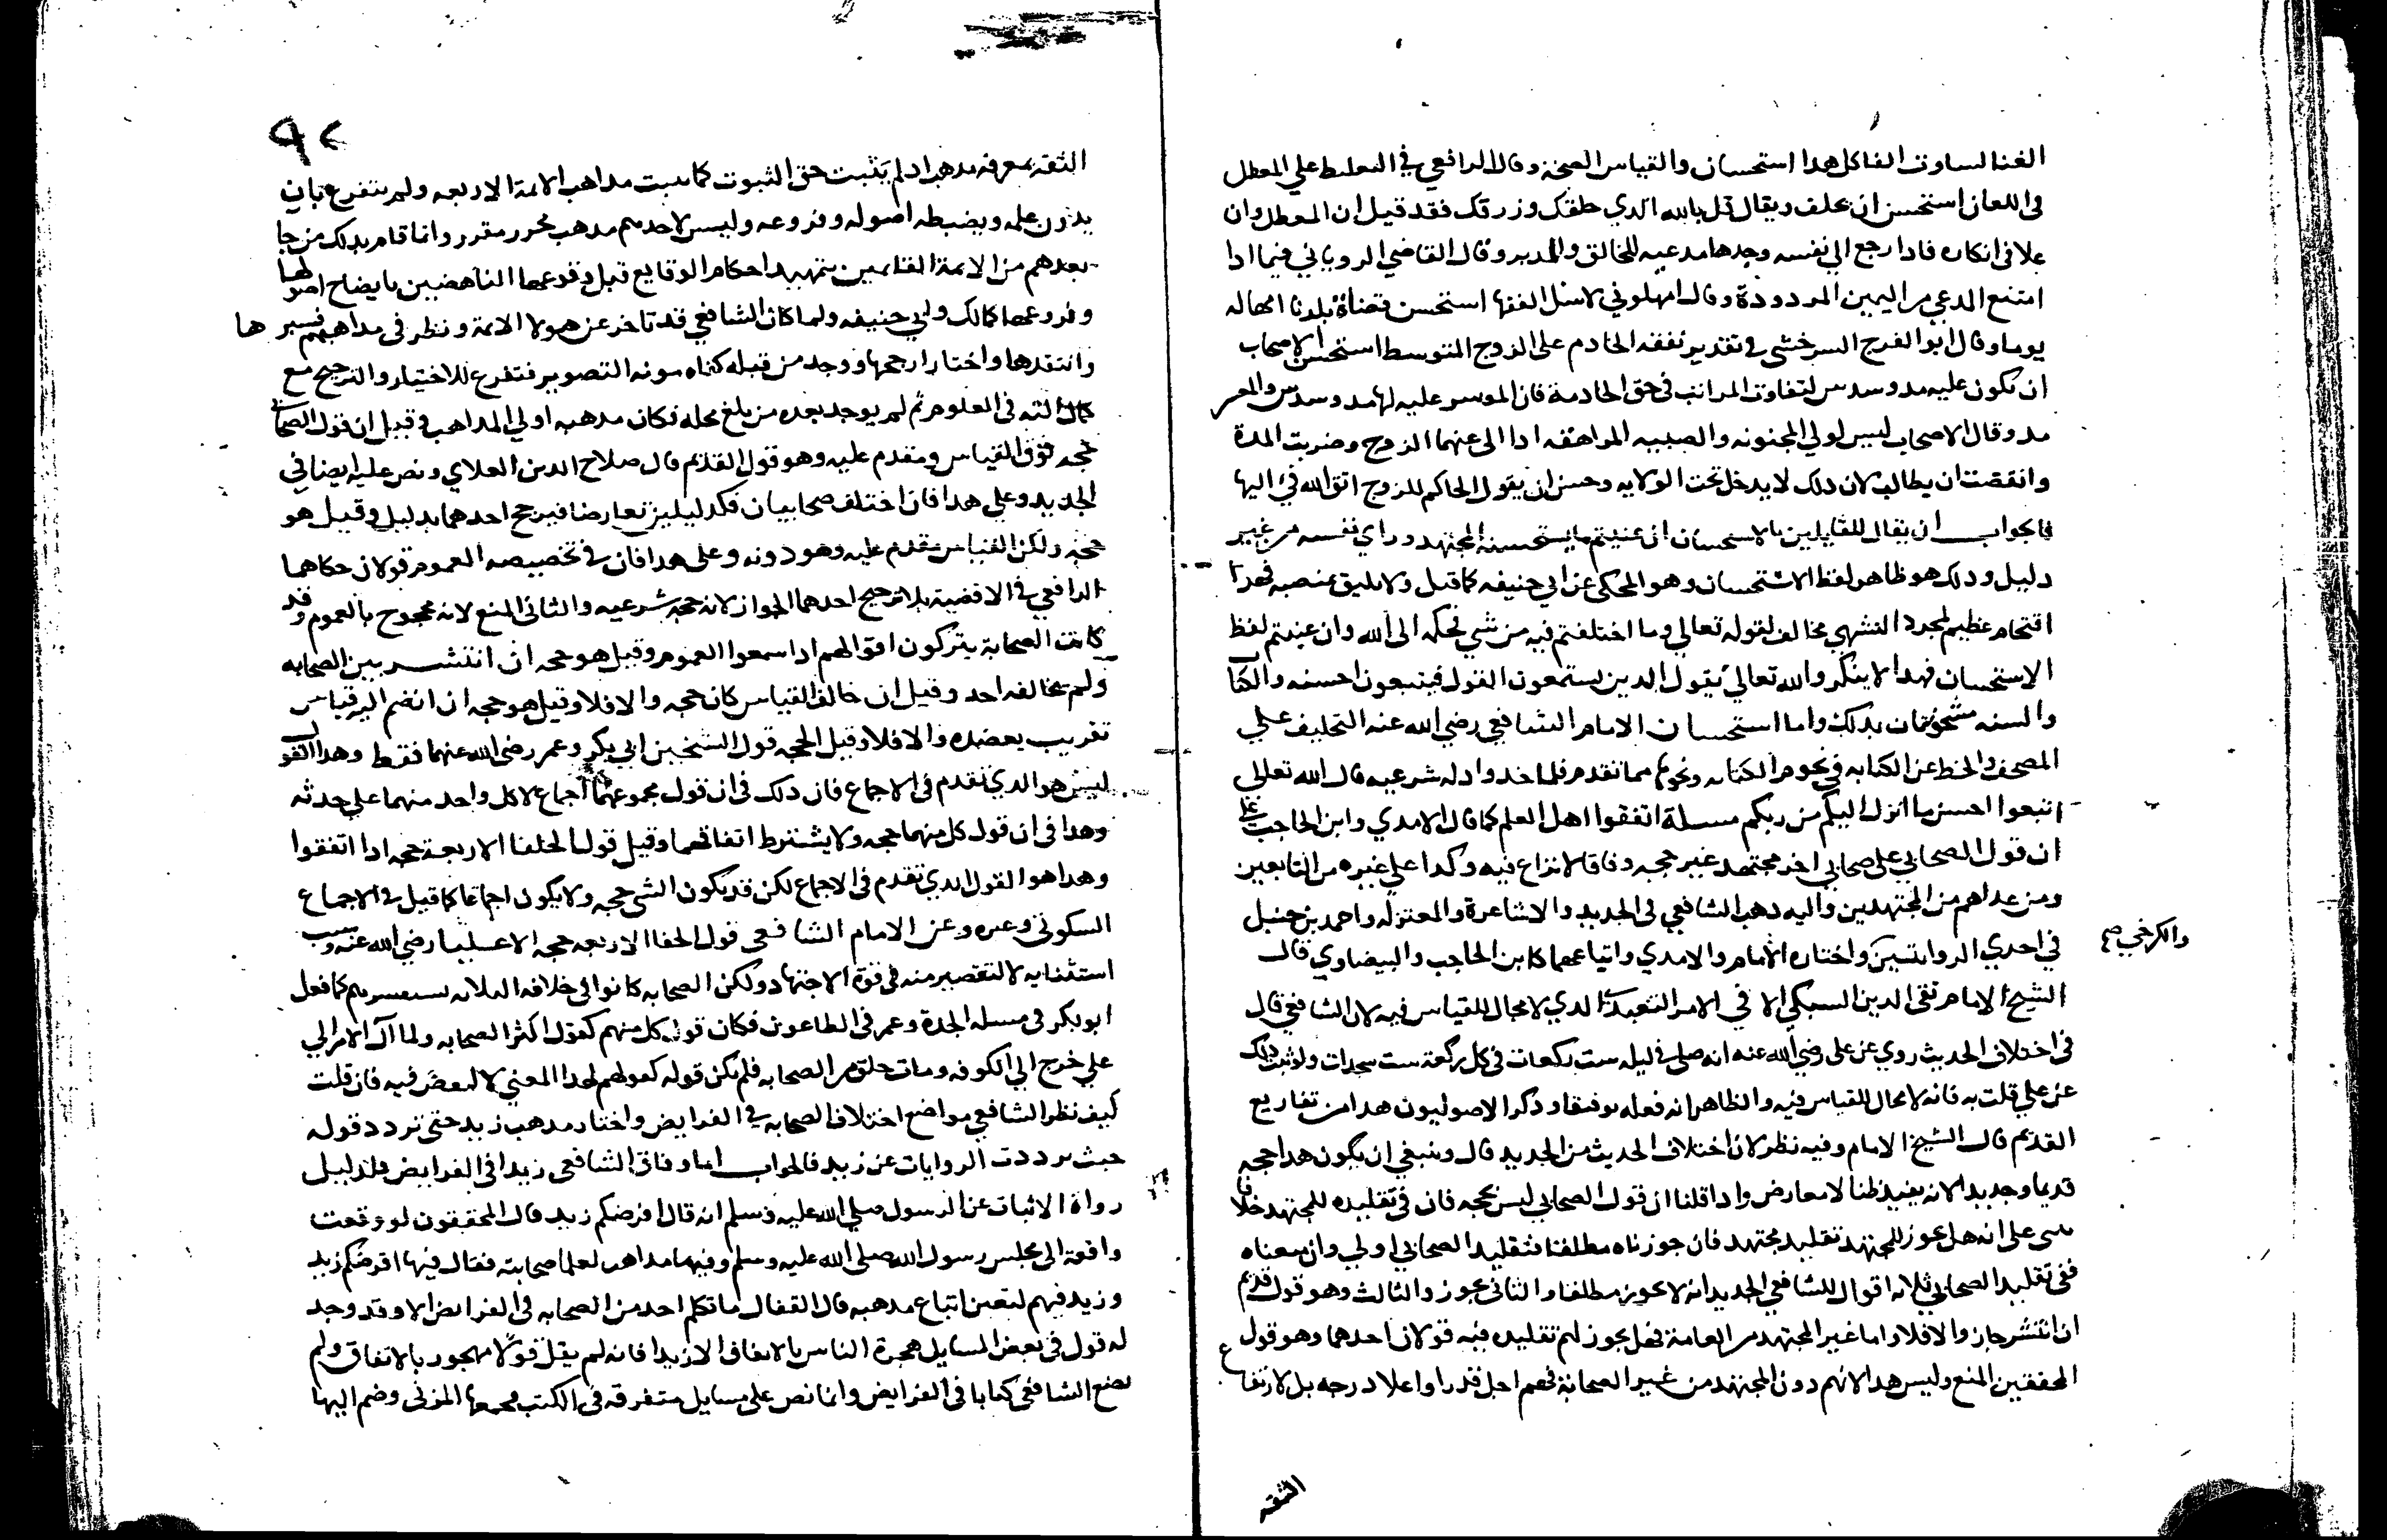 الفنا لساوت الفا كل هدا استحسان والقياس الصحة وقال الرافعي في التغليظ علي المعطل
في اللعان استحسن ان يحلف ويقال قل بالله الدي خلقك وزرقك فقد قيل ان المعطل وان
علا في انكاره فادا رجع الي نفسه وجدها مدعيه للخالق والمدبر وقال القاضي الروياني فيما ادا
امتنع المدعي من اليمين المردودة وقال امهلوني لاسئل الفقها استحسن قضاة بلدنا امهاله
يوما وقال ابو الفرج السرخسي في تقدير نفقه الخادم على الزوج المتوسط استحسن الاصحاب
ان يكون عليه مد وسدس لتفاوت المراتب في حق الخادمة فان الموسر عليه لها مد وسدس والمعسر
مد وقال الاصحاب ليس لولي المجنونه والصبيه المراهقه ادا الى عنهما الزوج وضربت المدة
وانقضت ان يطالب لان دلك لا يدخل تحت الولايه وحسن ان يقول الحاكم للزوج اتق الله في اليها
فالجواب ان يقال للقايلين بالاستحسان ان عنيتم ما يستحسنه المجتهد وراي نفسه من غير
دليل ودلك هو ظاهر لفظ الاستحسان وهو المحكى عن ابي حنيفه كما قيل ولا يليق بمنصبه فهدا
اقتحام عظيم لمجرد التشهي مخالف لقوله تعالي وما اختلفتم فيه من شي فحكمه الى الله وان عنيتم لفظ
الاستحسان فهدا لا ينكر والله تعالي يقول الدين يستمعون القول فيتبعون احسنه والكتاب
والسنه مشحونتان بدلك واما استحسان الامام الشافعي رضي الله عنه التحليف علي
المصحف والخط عن الكتابه في نجوم الكتابه ونحوهما مما تقدم فلماخد وادله شرعيه قال الله تعالي
اتبعوا احسن ما انزل اليكم من ربكم مسلة اتفقوا اهل العلم كما قال الامدي وابن الحاجب على
ان قول الصحابي على صحابي اخر مجتهد غير حجه وفاقا لا نزاع فيه وكدا علي غيره من التابعين
ومن عداهم من المجتهدين واليه دهب الشافعي في الجديد والاشاعرة والمعتزله واحمد بن حنبل
في احدي الروايتين والكرخي صح واختاره الامام والامدي واتباعهما كابن الحاجب والبيضاوي قال
الشيخ الامام تقى الدين السبكي الا في الامر التعبدي الدي لا مجال للقياس فيه لان الشافعي قال
في اختلاف الحديث روي عن على رضي الله عنه انه صلى في ليله ست ركعات في كل ركعة ست سجدات ولو ثبت دلك
عن علي قلت به فانه لا مجال للقياس فيه والظاهر انه فعله توقيفا ودكر الاصوليون هدا من تفاريع
القديم قال الشيخ الامام وفيه نظر لان اختلاف الحديث من الجديد قال وينبغي ان يكون هدا حجه
قديما وجديدا لانه يفيد ظنا لا معارض وادا قلنا ان قول الصحابي ليس بحجه فان في تقليده للمجتهد خلافا
سى على انه هل يجوز للمجتهد تقليد مجتهد فان جوزناه مطلقا فتقليد الصحابي اولي وان منعناه
ففى تقليد الصحابي ثلاثه اقوال للشافعي الجديد انه لا يجوز مطلقا والثاني يجوز والثالث وهو قول قديم
ان انتشر جاز والا فلا واما غير المجتهد من العامة فهل يجوز لهم تقليده فيه قولان احدهما وهو قول
المحققين المنع وليس هدا لانهم دون المجتهد من غير الصحابة فهم اجل قدرا واعلا درجه بل لارتفاع
الثقه
٩٢
الثقه بمعرفه مدهبه ادلم يثبت حق الثبوت كما ثبت مداهب الائمة الاربعه ولم يتفرع بان
يدون علمه ويضبطه اصوله وفروعه وليس لاحد منهم مدهب محرر مقرر وانما قام بدلك من جا
بعدهم من الائمة القايمين بتمهيد احكام الوقايع قبل وقوعها الناهضين بايضاح اصولها
وفروعها كمالك وابي حنيفه ولما كان الشافعي قد تاخر عن هولا الائمة ونظر في مداهبهم فسبرها
وانتقدها واختار ارجحها ووجد من قبله كفاه مونه التصوير فتفرع للاختيار والترجيح مع
كمال الته في العلوم ثم لم يوجد بعده من بلغ محله فكان مدهبه اولي المداهب وقيل ان قول الصحابي
حجه فوق القياس ومقدم عليه وهو قول القديم قال صلاح الدين العلاي ونص عليه ايضا في
الجديد وعلي هدا فان اختلف صحابيان فكدليلين تعارضا فيرجح احدهما بدليل وقيل هو
حجه ولكن القياس مقدم عليه وهو دونه وعلى هدا فان في تخصيصه العموم قولان حكاهما
الرافعي في الاقضية بلا ترجيح احدهما الجواز لانه حجه شرعيه والثاني المنع لانه محجوج بالعموم وقد
كانت الصحابة يتركون اقوالهم ادا سمعوا العموم وقيل هو حجه ان انتشر بين الصحابه
ولم يخالفه احد وقيل ان خالف القياس كان حجه والا فلا وقيل هو حجه ان انضم اليه قياس
تقريب يعضده والا فلا وقيل الحجه قول الشيخين ابي بكر وعمر رضى الله عنهما فقط وهدا القول
ليس هو الدي تقدم في الاجماع فان دلك في ان قول مجموعهما اجماع لا كل واحد منهما على حدته
وهدا في ان قول كل منهما حجه ولا يشترط اتفاقهما وقيل قول الخلفا الاربعة حجه ادا اتفقوا
وهدا هو القول الدي تقدم في الاجماع لكن قد يكون الشي حجه ولا يكون اجماعا كما قيل في الاجماع
السكوتي وغيره وعن الامام الشافعي قول الخلفا الاربعه حجه الا عليا رضي الله عنه وسبب
استثنايه لا لتقصير منه في قوة الاجتهاد ولكن الصحابه كانوا في خلافه الثلاثه يستشيرهم كما فعل
ابو بكر في مسله الجدة وعمر في الطاعون فكان قول كل منهم كقول اكثر الصحابه ولما آل الامر الي
علي خرج الي الكوفه ومات خلق من الصحابه فلم يكن قوله كقولهم لهدا المعني لا لنقص فيه فان قلت
كيف نظر الشافعي مواضع اختلاف الصحابه في الفرايض واختار مدهب زيد حتى تردد قوله
حيث ترددت الروايات عن زيد فالجواب اما وفاق الشافعي زيدا في الفرايض فلدليل
رواه الاثبات عن الرسول صلي الله عليه وسلم انه قال افرضكم زيد قال المحققون لو وقعت
واقعة الى مجلس رسول الله صلى الله عليه وسلم وفيها مداهب لعلما صحابته فقال فيها افرضكم زيد
وزيد فيهم لتعين اتباع مدهبه قال القفال ما تكلم احد من الصحابه في الفرايض الا وقد وجد
له قول في بعض المسايل هجره الناس بالاتفاق الا زيدا فانه لم يقل قولا مهجورا بالاتفاق ولم
يضع الشافعي كتابا في الفرايض وانما نص على مسايل متفرقه في الكتب فجمعها المزني وضم اليها